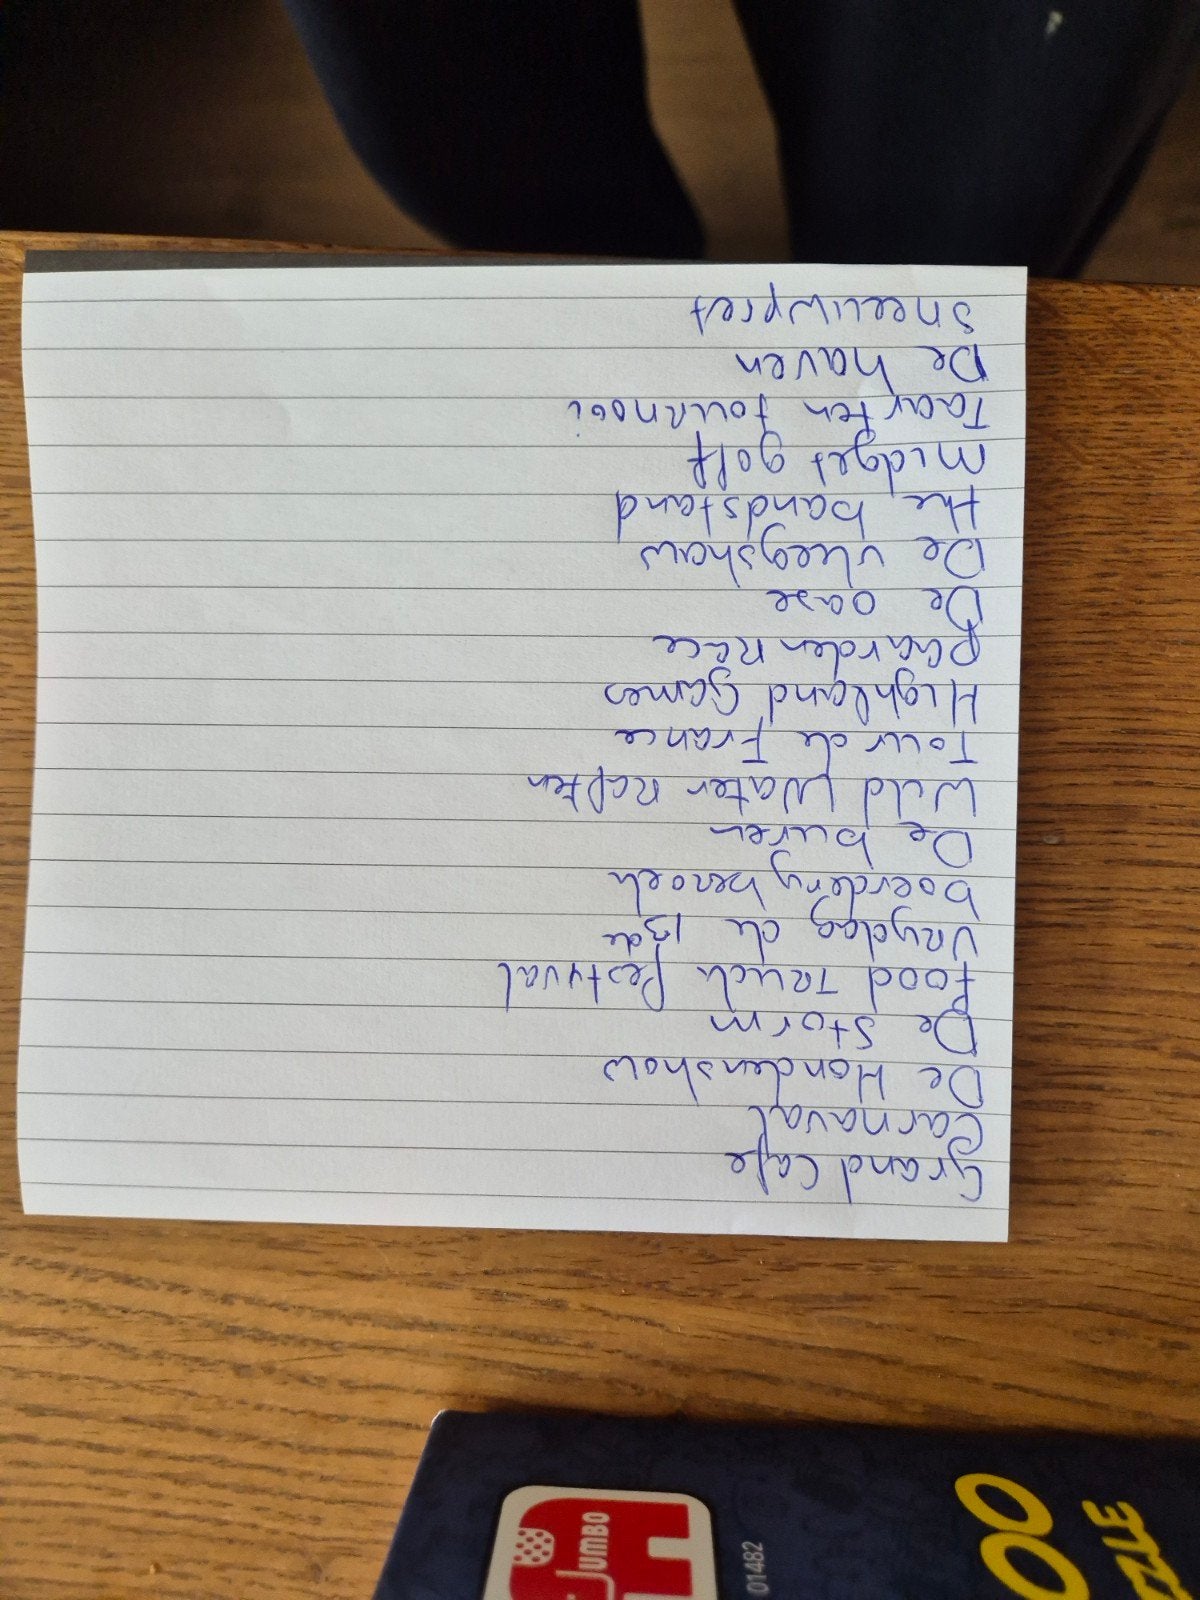 Grand Cafe
Carnaval
De Hondenshow
De Storm
food Truck festyval
Vrydag de 13de
boerdery bezoek
De buren
Wild Water Raften
Tour de France
Highland Games
paarden Race
De oase
De vliegshow
the bandstand
midget golf
Taarten tournooi
De haven
sneeuwpret
JUMBO
01482